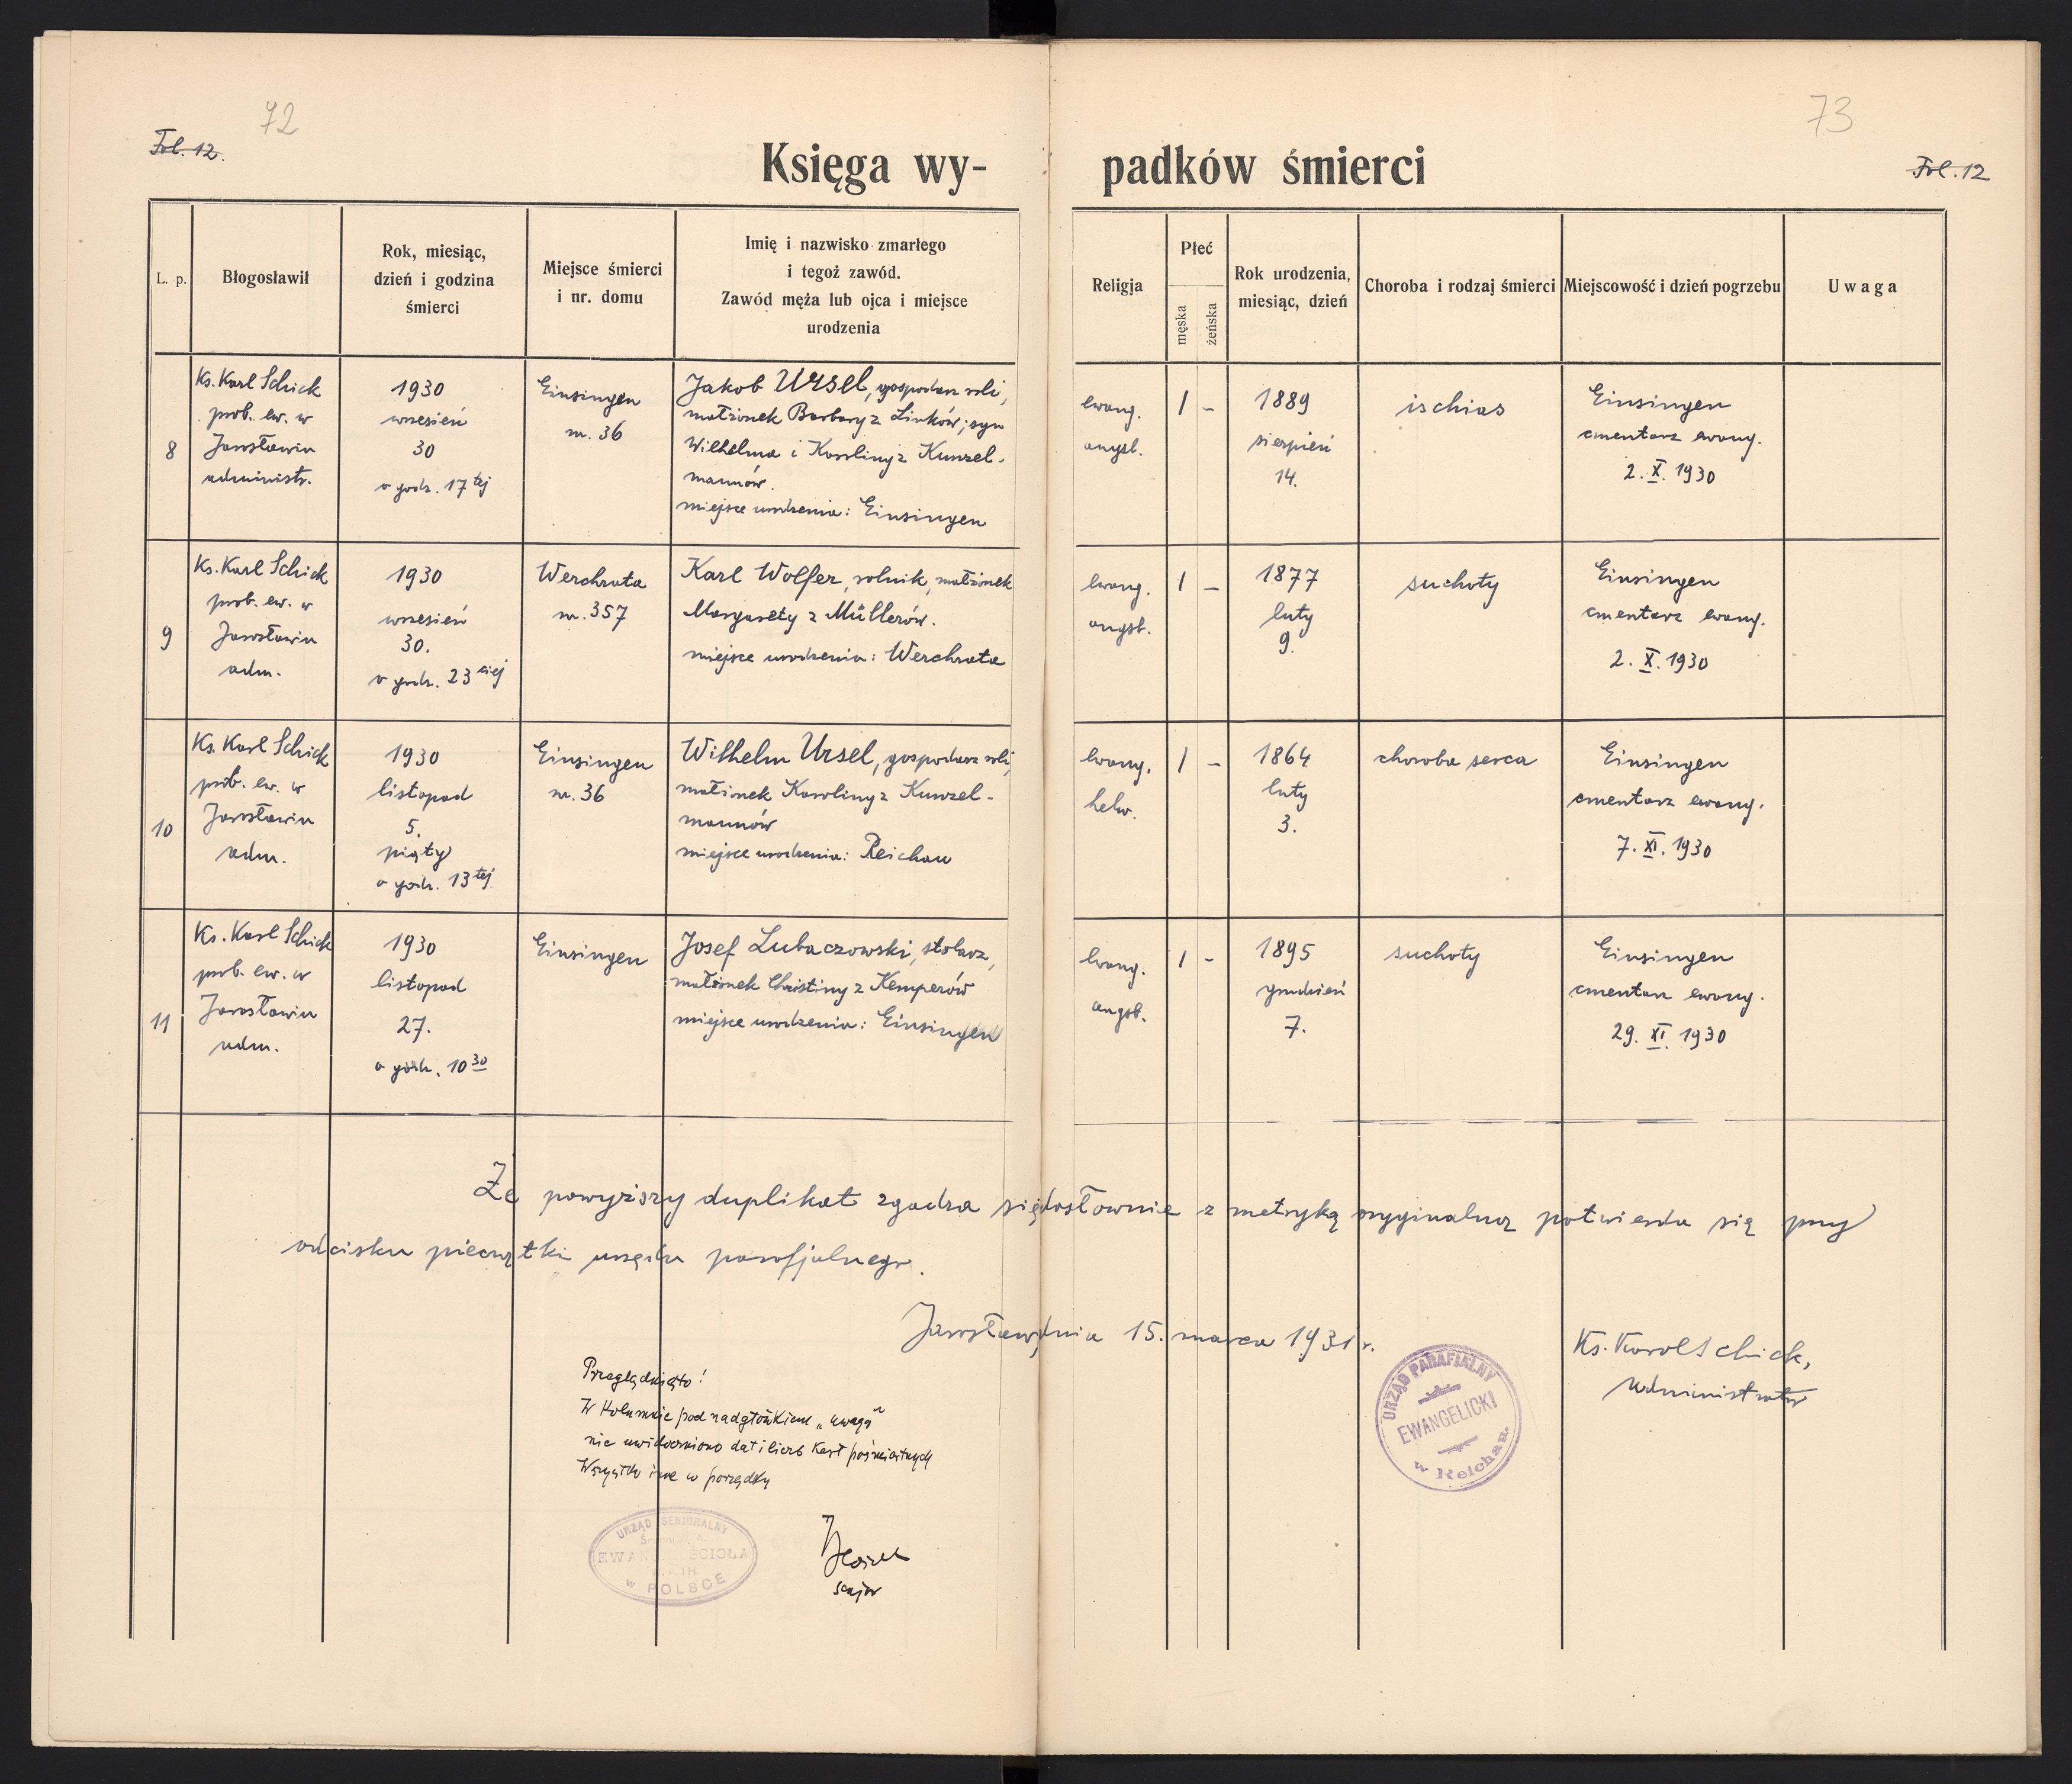 72
73
Fol. 12.
Fol. 12
Księga wy-
padków śmierci
L. p.
Błogosławił
Rok, miesiąc,
dzień i godzina
śmierci
Miejsce śmierci
i nr. domu
Imię i nazwisko zmarłego
i tegoż zawód.
Zawód męża lub ojca i miejsce
urodzenia
Religja
Płeć
męska
żeńska
Rok urodzenia,
miesiąc, dzień
Choroba i rodzaj śmierci
Miejscowość i dzień pogrzebu
Uwaga
8
Ks. Karl Schick
prob. ew. w
Jarosławiu
administr.
1930
wrzesień
30
o godz. 17 tej
Einsingen
nr. 36
Jakob Ursel, gospodarz roli,
małżonek Barbary z Linków; syn
Wilhelma i Karoliny z Kunzel-
mannów.
miejsce urodzenia: Einsingen
ewang.
augsb.
1 -
1889
sierpień
14.
ischias
Einsingen
cmentarz ewang.
2. X. 1930
9
Ks. Karl Schick
prob. ew. w
Jarosławiu
adm.
1930
wrzesień
30.
o godz. 23 ciej
Werchrata
nr. 357
Karl Wolfer, rolnik, małżonek
Margarety z Müllerów.
miejsce urodzenia: Werchrata
ewang.
augsb.
1 -
1877
luty
9.
suchoty
Einsingen
cmentarz ewang.
2. X. 1930
10
Ks. Karl Schick
prob. ew. w
Jarosławiu
adm.
1930
listopad
5.
piąty
o godz. 13 tej
Einsingen
nr. 36
Wilhelm Ursel, gospodarz roli,
małżonek Karoliny z Kunzel-
mannów
miejsce urodzenia: Reichau
ewang.
helw.
1 -
1864
luty
3.
choroba serca
Einsingen
cmentarz ewang.
7. XI. 1930
11
Ks. Karl Schick
prob. ew. w
Jarosławiu
adm.
1930
listopad
27.
o godz. 10 30
Einsingen
Josef Lubaczowski, stolarz,
małżonek Christiny z Kemperów
miejsce urodzenia: Einsingen
ewang.
augsb.
1 -
1895
grudzień
7.
suchoty
Einsingen
cmentarz ewang.
29. XI. 1930
Że powyższy duplikat zgadza się dosłownie z metryką oryginalną potwierdza się przy
odcisku pieczątki urzędu parafjalnego.
Jarosław, dnia 15. marca 1931 r.
Ks. Karol Schick,
Administrator
URZĄD PARAFIALNY
EWANGELICKI
w Reichau.
Przeglądnięto!
W kolumnie pod nadgłówkiem „uwaga"
nie uwidoczniono dat i liczb kart pośmiertnych
Wszystko inne w porządku
URZĄD SENJORALNY
EWA ŚCIOŁA
w POLSCE
senjor